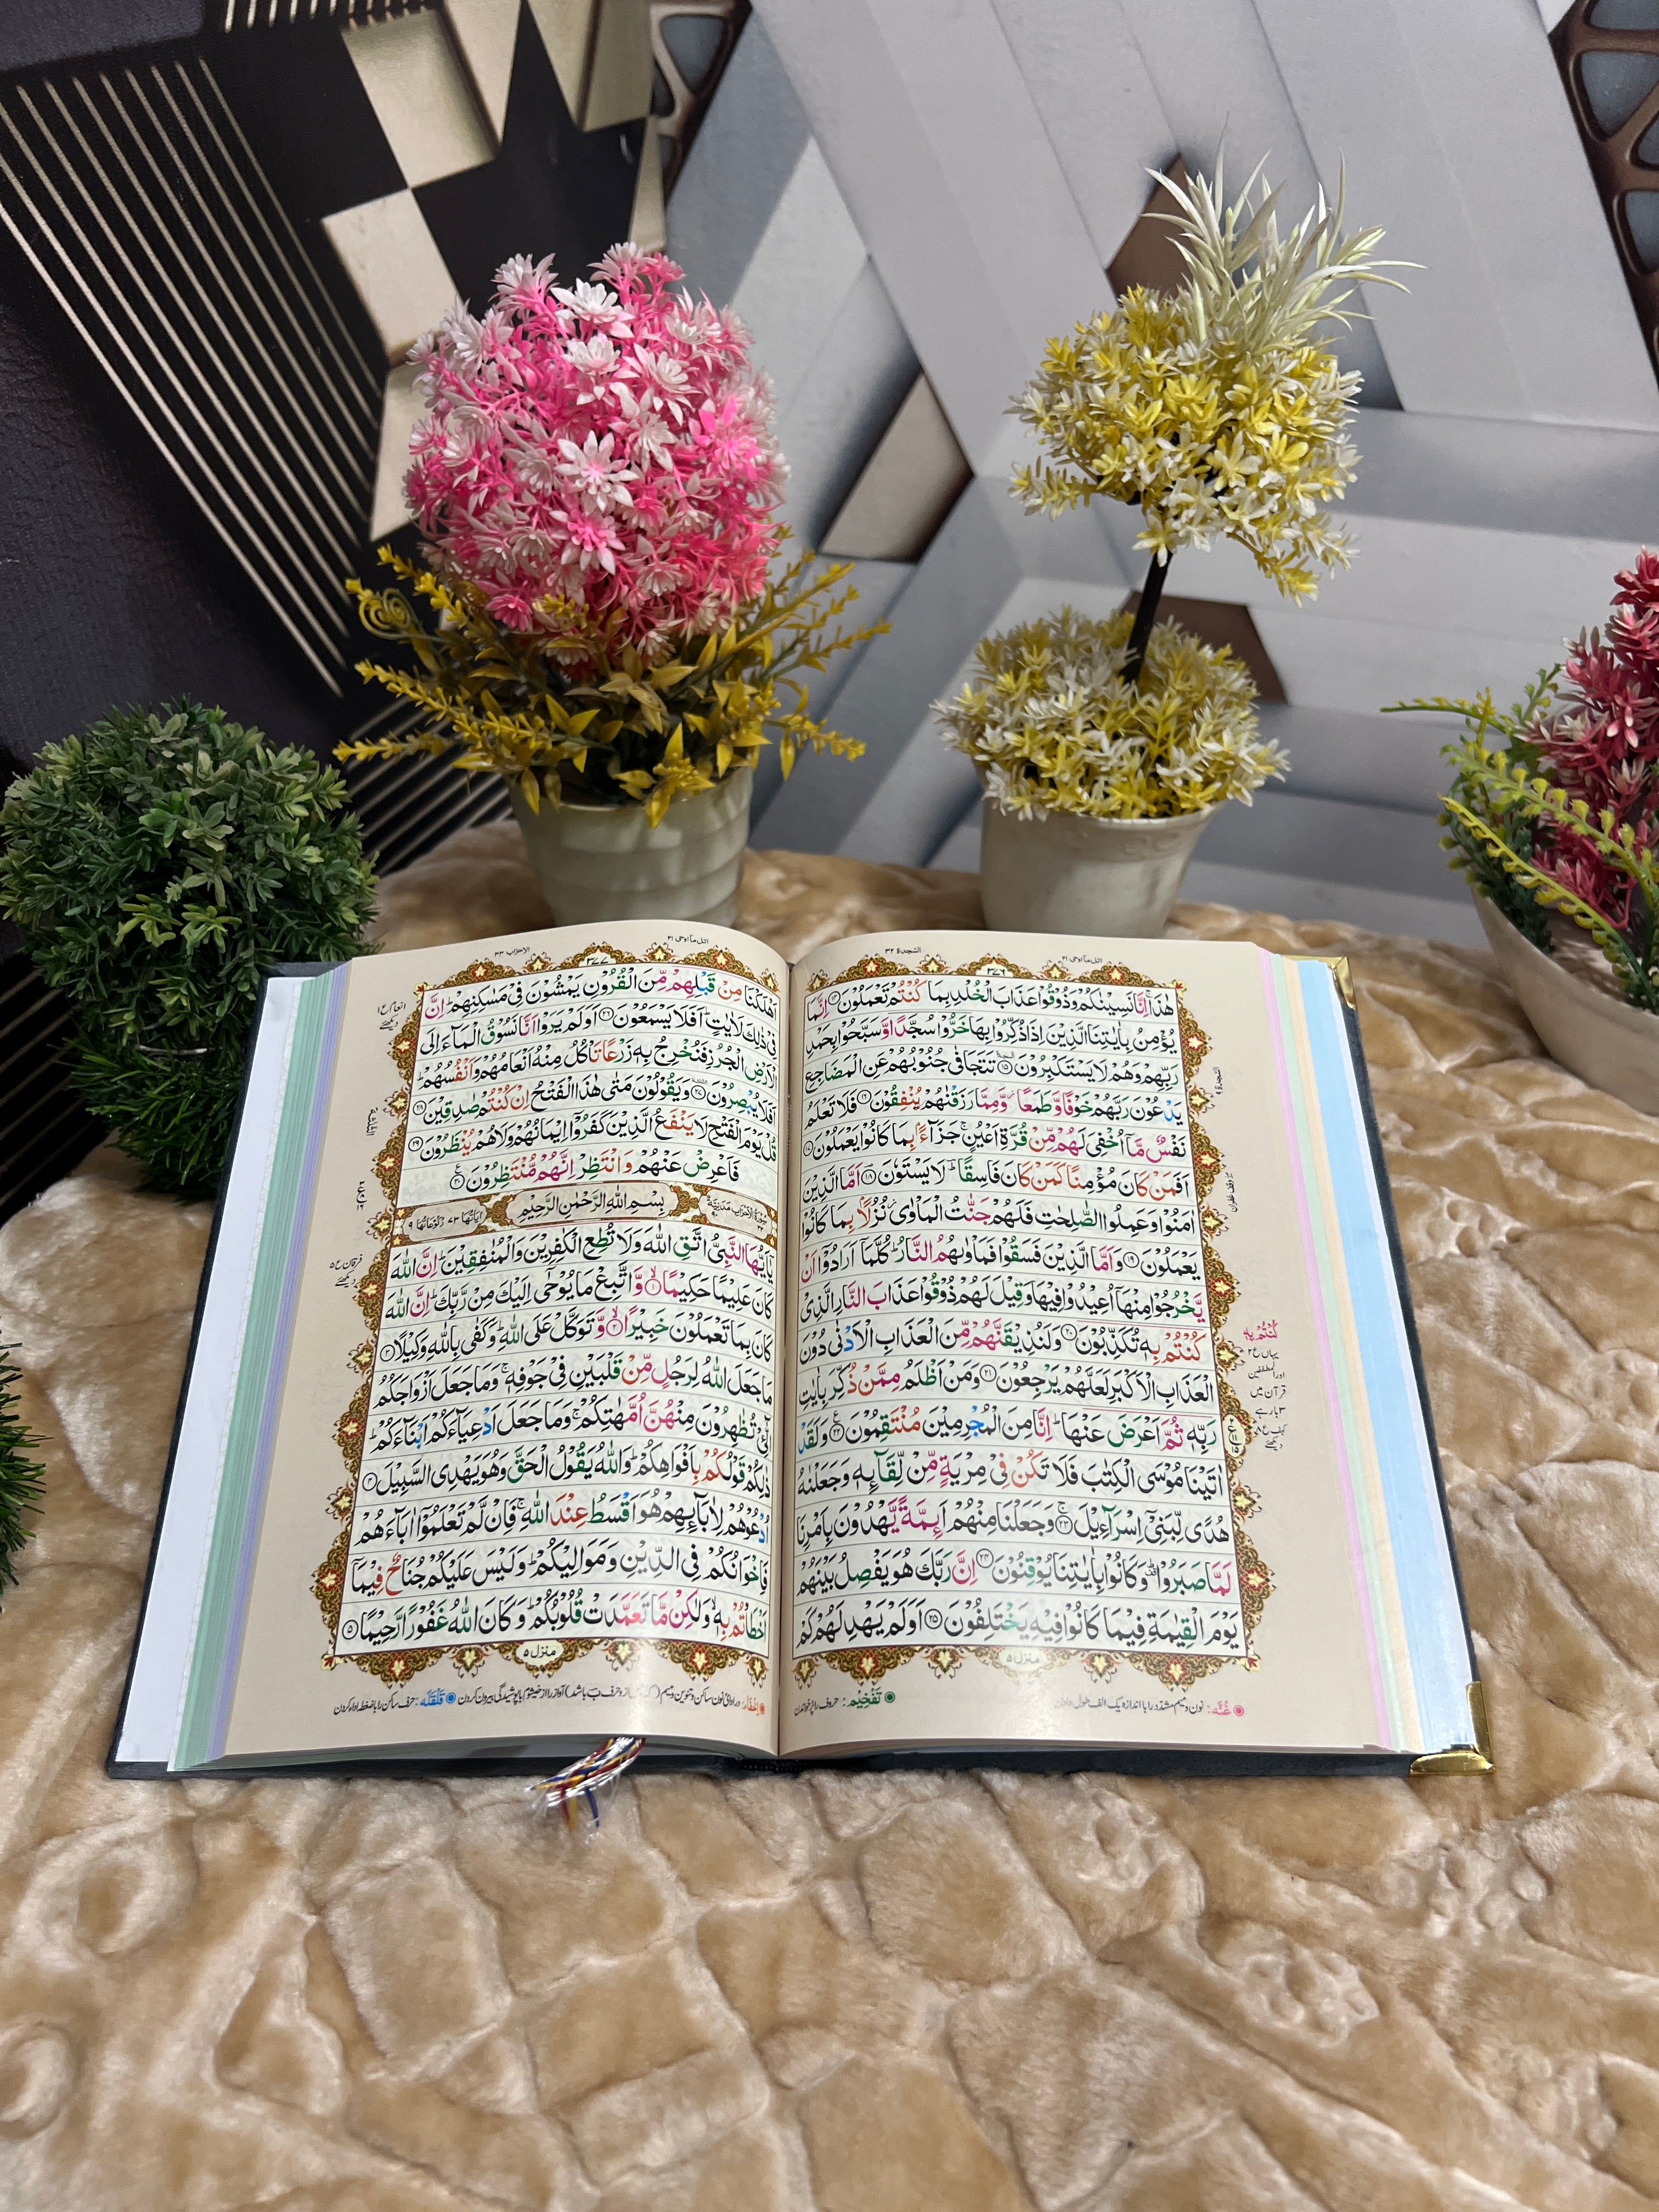 السجدة ٣٢
اتل ما اوحی ٢١
٣٧٦
هٰذَا ۚ اِنَّا نَسِيْنٰكُمْ وَذُوْقُوْا عَذَابَ الْخُلْدِ بِمَا كُنْتُمْ تَعْمَلُوْنَ ۝١٤ اِنَّمَا
يُؤْمِنُ بِاٰيٰتِنَا الَّذِيْنَ اِذَا ذُكِّرُوْا بِهَا خَرُّوْا سُجَّدًا وَّسَبَّحُوْا بِحَمْدِ
رَبِّهِمْ وَهُمْ لَا يَسْتَكْبِرُوْنَ ۝١٥ تَتَجَافٰى جُنُوْبُهُمْ عَنِ الْمَضَاجِعِ
يَدْعُوْنَ رَبَّهُمْ خَوْفًا وَّطَمَعًا ۡ وَّمِمَّا رَزَقْنٰهُمْ يُنْفِقُوْنَ ۝١٦ فَلَا تَعْلَمُ
نَفْسٌ مَّآ اُخْفِيَ لَهُمْ مِّنْ قُرَّةِ اَعْيُنٍ ۚ جَزَآءًۢ بِمَا كَانُوْا يَعْمَلُوْنَ ۝١٧
اَفَمَنْ كَانَ مُؤْمِنًا كَمَنْ كَانَ فَاسِقًا ؕ لَا يَسْتَوٗنَ ۝١٨ اَمَّا الَّذِيْنَ
اٰمَنُوْا وَعَمِلُوا الصّٰلِحٰتِ فَلَهُمْ جَنّٰتُ الْمَاْوٰى ۡ نُزُلًۢا بِمَا كَانُوْا
يَعْمَلُوْنَ ۝١٩ وَاَمَّا الَّذِيْنَ فَسَقُوْا فَمَاْوٰىهُمُ النَّارُ ؕ كُلَّمَآ اَرَادُوْٓا اَنْ
يَّخْرُجُوْا مِنْهَآ اُعِيْدُوْا فِيْهَا وَقِيْلَ لَهُمْ ذُوْقُوْا عَذَابَ النَّارِ الَّذِيْ
كُنْتُمْ بِهٖ تُكَذِّبُوْنَ ۝٢٠ وَلَنُذِيْقَنَّهُمْ مِّنَ الْعَذَابِ الْاَدْنٰى دُوْنَ
الْعَذَابِ الْاَكْبَرِ لَعَلَّهُمْ يَرْجِعُوْنَ ۝٢١ وَمَنْ اَظْلَمُ مِمَّنْ ذُكِّرَ بِاٰيٰتِ
رَبِّهٖ ثُمَّ اَعْرَضَ عَنْهَا ؕ اِنَّا مِنَ الْمُجْرِمِيْنَ مُنْتَقِمُوْنَ ۝٢٢ وَلَقَدْ
اٰتَيْنَا مُوْسَى الْكِتٰبَ فَلَا تَكُنْ فِيْ مِرْيَةٍ مِّنْ لِّقَآئِهٖ وَجَعَلْنٰهُ
هُدًى لِّبَنِيْٓ اِسْرَآءِيْلَ ۝٢٣ وَجَعَلْنَا مِنْهُمْ اَئِمَّةً يَّهْدُوْنَ بِاَمْرِنَا
لَمَّا صَبَرُوْا ؕ وَكَانُوْا بِاٰيٰتِنَا يُوْقِنُوْنَ ۝٢٤ اِنَّ رَبَّكَ هُوَ يَفْصِلُ بَيْنَهُمْ
يَوْمَ الْقِيٰمَةِ فِيْمَا كَانُوْا فِيْهِ يَخْتَلِفُوْنَ ۝٢٥ اَوَلَمْ يَهْدِ لَهُمْ كَمْ
منزل ٥
غُنَّه: نون و میم مشدد را با اندازه یک الف طول دادن
تَفْخِيْم: حروف را پر خواندن
اتل ما اوحی ٢١
الاحزاب ٣٣
٣٧٧
اَهْلَكْنَا مِنْ قَبْلِهِمْ مِّنَ الْقُرُوْنِ يَمْشُوْنَ فِيْ مَسٰكِنِهِمْ ؕ اِنَّ
فِيْ ذٰلِكَ لَاٰيٰتٍ ؕ اَفَلَا يَسْمَعُوْنَ ۝٢٦ اَوَلَمْ يَرَوْا اَنَّا نَسُوْقُ الْمَآءَ اِلَى
الْاَرْضِ الْجُرُزِ فَنُخْرِجُ بِهٖ زَرْعًا تَاْكُلُ مِنْهُ اَنْعَامُهُمْ وَاَنْفُسُهُمْ ؕ
اَفَلَا يُبْصِرُوْنَ ۝٢٧ وَيَقُوْلُوْنَ مَتٰى هٰذَا الْفَتْحُ اِنْ كُنْتُمْ صٰدِقِيْنَ ۝٢٨
قُلْ يَوْمَ الْفَتْحِ لَا يَنْفَعُ الَّذِيْنَ كَفَرُوْٓا اِيْمَانُهُمْ وَلَا هُمْ يُنْظَرُوْنَ ۝٢٩
فَاَعْرِضْ عَنْهُمْ وَانْتَظِرْ اِنَّهُمْ مُّنْتَظِرُوْنَ ۝٣٠
سُوْرَةُ الْاَحْزَابِ مَدَنِيَّةٌ بِسْمِ اللّٰهِ الرَّحْمٰنِ الرَّحِيْمِ اٰيَاتُهَا ٧٣ رُكُوْعَاتُهَا ٩
يٰٓاَيُّهَا النَّبِيُّ اتَّقِ اللّٰهَ وَلَا تُطِعِ الْكٰفِرِيْنَ وَالْمُنٰفِقِيْنَ ؕ اِنَّ اللّٰهَ
كَانَ عَلِيْمًا حَكِيْمًا ۝١ وَّاتَّبِعْ مَا يُوْحٰٓى اِلَيْكَ مِنْ رَّبِّكَ ؕ اِنَّ اللّٰهَ
كَانَ بِمَا تَعْمَلُوْنَ خَبِيْرًا ۝٢ وَّتَوَكَّلْ عَلَى اللّٰهِ ؕ وَكَفٰى بِاللّٰهِ وَكِيْلًا ۝٣
مَا جَعَلَ اللّٰهُ لِرَجُلٍ مِّنْ قَلْبَيْنِ فِيْ جَوْفِهٖ ۚ وَمَا جَعَلَ اَزْوَاجَكُمُ
الّٰٓـِٔيْ تُظٰهِرُوْنَ مِنْهُنَّ اُمَّهٰتِكُمْ ۚ وَمَا جَعَلَ اَدْعِيَآءَكُمْ اَبْنَآءَكُمْ ؕ
ذٰلِكُمْ قَوْلُكُمْ بِاَفْوَاهِكُمْ ؕ وَاللّٰهُ يَقُوْلُ الْحَقَّ وَهُوَ يَهْدِي السَّبِيْلَ ۝٤
اُدْعُوْهُمْ لِاٰبَآئِهِمْ هُوَ اَقْسَطُ عِنْدَ اللّٰهِ ۚ فَاِنْ لَّمْ تَعْلَمُوْٓا اٰبَآءَهُمْ
فَاِخْوَانُكُمْ فِي الدِّيْنِ وَمَوَالِيْكُمْ ؕ وَلَيْسَ عَلَيْكُمْ جُنَاحٌ فِيْمَآ
اَخْطَاْتُمْ بِهٖ ۙ وَلٰكِنْ مَّا تَعَمَّدَتْ قُلُوْبُكُمْ ؕ وَكَانَ اللّٰهُ غَفُوْرًا رَّحِيْمًا ۝٥
منزل ٥
قَلْقَلَه: حرف ساکن را با ضغطه ادا کردن